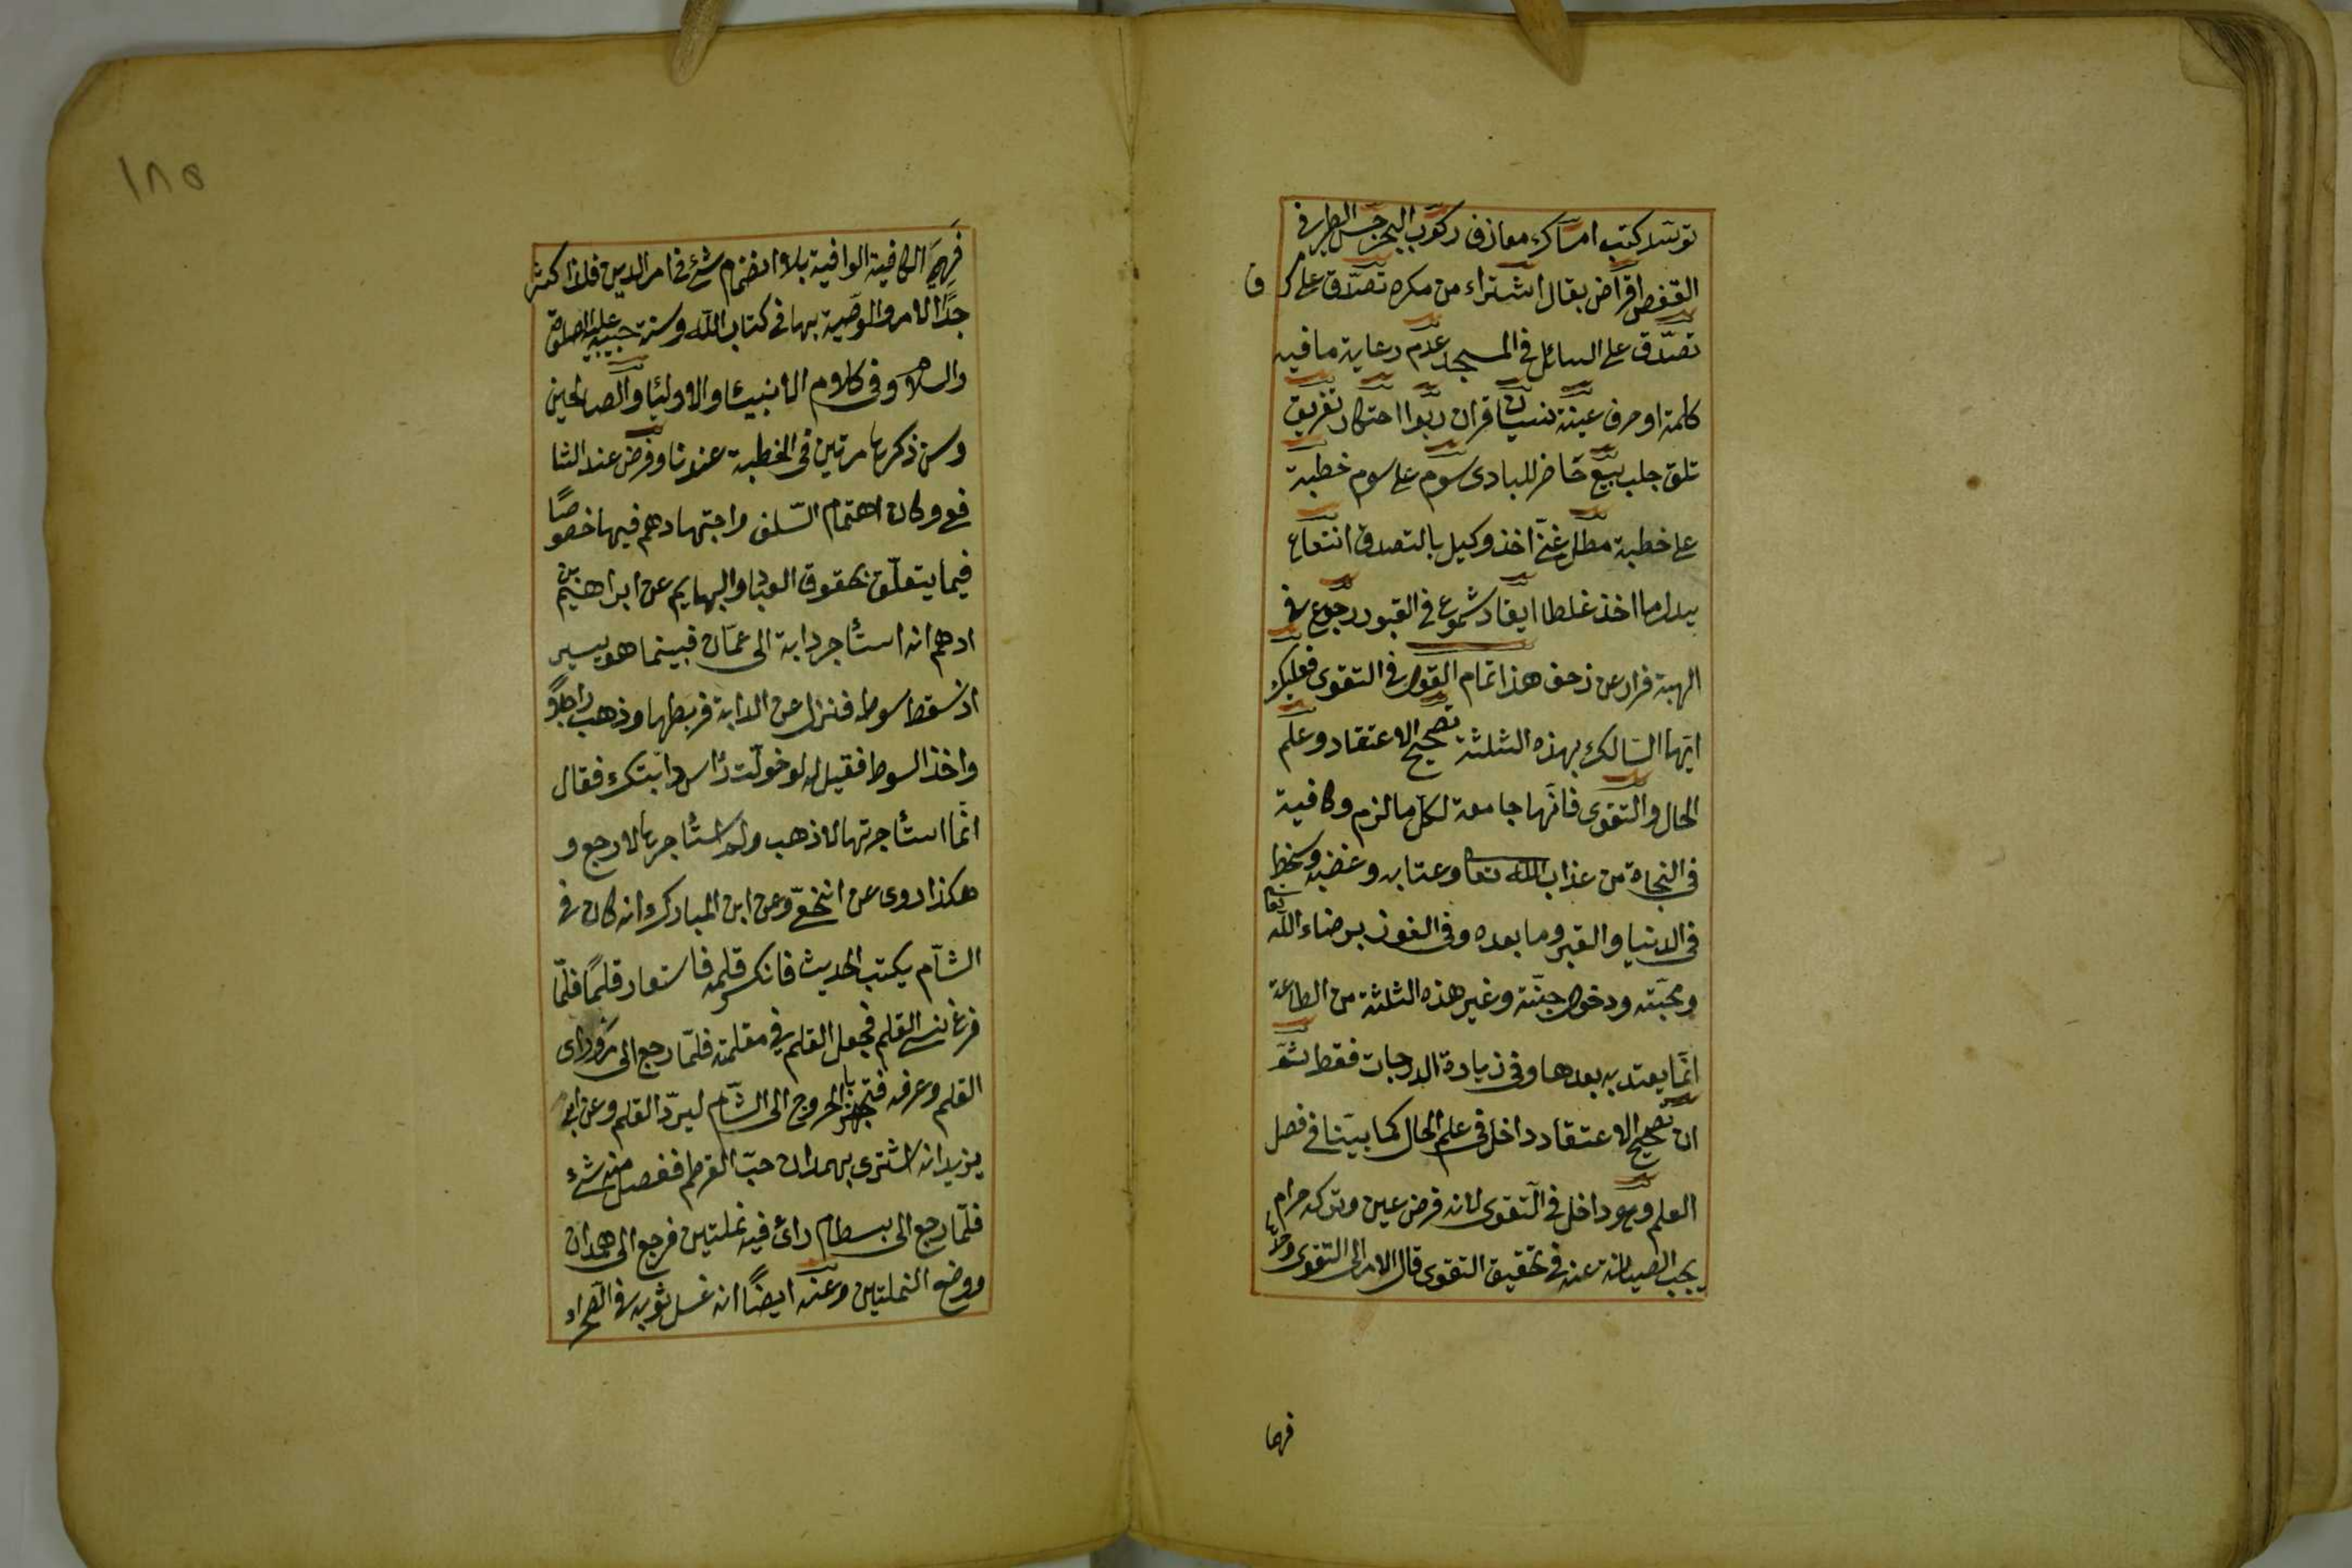 توسد كتب امساك معازف ركوب البحر حبس الطير في
القفص اقراض بقال اشتراء من مكره تصدق على
تصدّق على السائل في المسجد عدم رعاية ما فيه
كلمة او حرف عينة نسيان قران ربوا احتكار تفريق
تلق جلب بيع حاضر للبادى سوم على سوم خطبة
على خطبة مطل غنىّ اخذ وكيل بالتصدق انتفاع
ببدل ما اخذ غلطا ايقاد شموع في القبور رجوع في
الهبة فرار عن زحف هذا تمام القول في التقوى فعليك
ايّها السّالك بهذه الثلثة تصحيح الاعتقاد وعلم
الحال والتقوى فانّها جامعة لكلّ ما لزم وكافية
في النجاة من عذاب اللّه تعا وعتابه وغضبه وسخط
في الدنيا والقبر وما بعده وفي الفوز برضاء اللّه تعا
ومحبّته ودخول جنّته وغير هذه الثلثة من الطاعة
انّما يعتد به بعدها وفي زيادة الدرجات فقط ثمّ
ان تصحيح الاعتقاد داخل في علم الحال كما بيّنا في فصل
العلم وهو داخل في التّقوى لانه فرض عين وتركه حرام
يجب الصيانة عنه في تحقيق التقوى قال الامر الى التقوى
فهى الكافية الوافية بلا انضمام شئ في امر الدين فلذا كثر
جدًّا الامر والوصّية بها في كتاب اللّه وسنة حبيبه عليه الصلوة
والسلام وفي كلام الانبيئا والاوليا والصالحين
وسن ذكرها مرتين في الخطبة عندنا وفرض عند الشا
فعى وكان اهتمام السّلف واجتهادهم فيها خصوصًا
فيما يتعلّق بحقوق العباد والبهايم عن ابراهيم بن
ادهم انه استأجر دابة الى عمّان فبينما هو يسير
اذ سقط سوطه فنزل عن الدابة فربطها وذهب راجلاً
واخذ السوط فقيل له لو حولّت رأس دابّتك فقال
انّما استأجرتها لاذهب ولم استأجرها لارجع و
هكذا روى عن النخعىّ وعن ابن المبارك انه كان في
الشّام يكتب الحديث فانكسر قلمه فاستعار قلمًا فلمّا
فرغ نسى القلم فجعل القلم في مقلمته فلمّا رجع الى مرو راى
القلم وعرفه فتجهز بالخروج الى الشّام ليردّ القلم وعن ابى
يزيد انه اشترى بهمدان حبّ القرطم ففضل منه شئ
فلمّا رجع الى بسطام رائ فيه نملتين فرجع الى همدان
ووضع النملتين وعنه ايضًا انه غسل ثوبه في الصّحراء
فهى
١٨٥